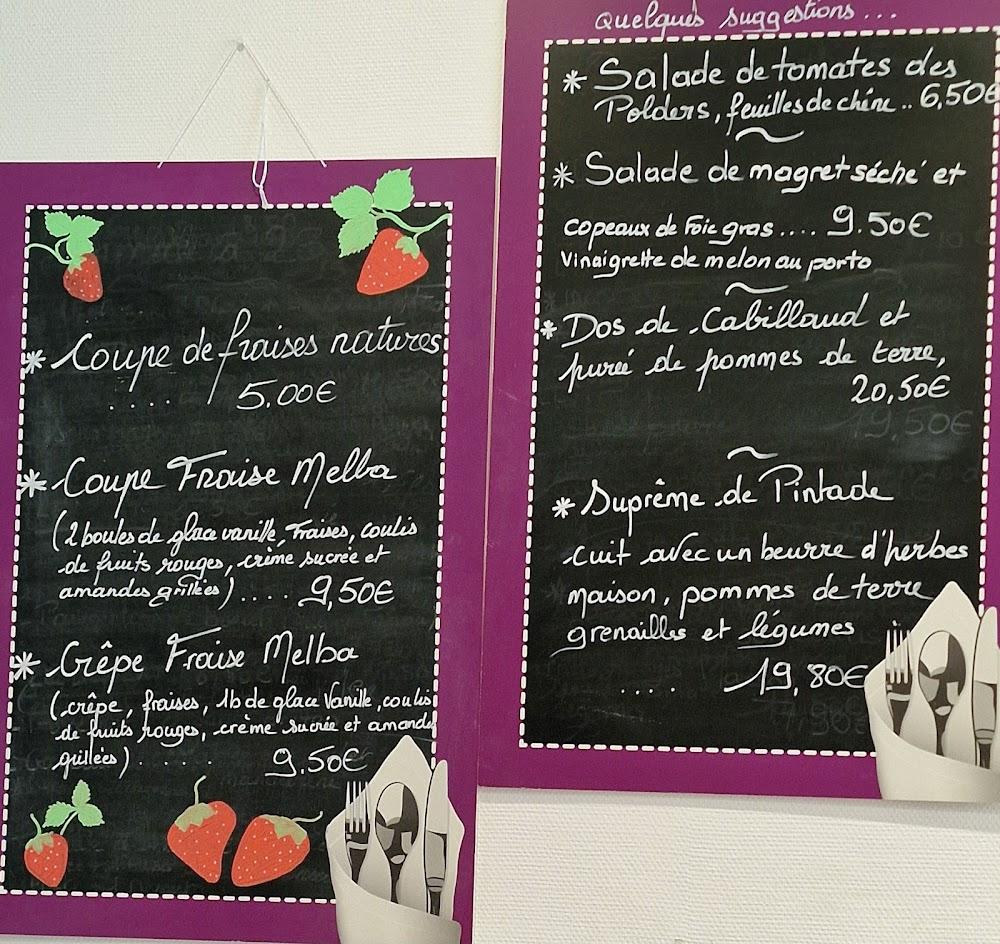 * Coupe de fraises natures
.... 5.00€
* Coupe Fraise Melba
(2 boules de glace vanille, fraises, coulis
de fruits rouges, crème sucrée et
amandes grillées) .... 9,50€
* Crêpe Fraise Melba
(crêpe, fraises, 1b de glace Vanille, coulis
de fruits rouges, crème sucrée et amandes
grillées) ..... 9.50€
quelques suggestions...
* Salade de tomates des
Polders, feuilles de chêne .. 6,50€
~
* Salade de magret séché et
copeaux de Foie gras .... 9.50€
vinaigrette de melon au porto
~
* Dos de Cabillaud et
purée de pommes de terre,
20,50€
19,50€
~
* Suprême de Pintade
cuit avec un beurre d'herbes
maison, pommes de terre
grenailles et légumes
.... 19,80€